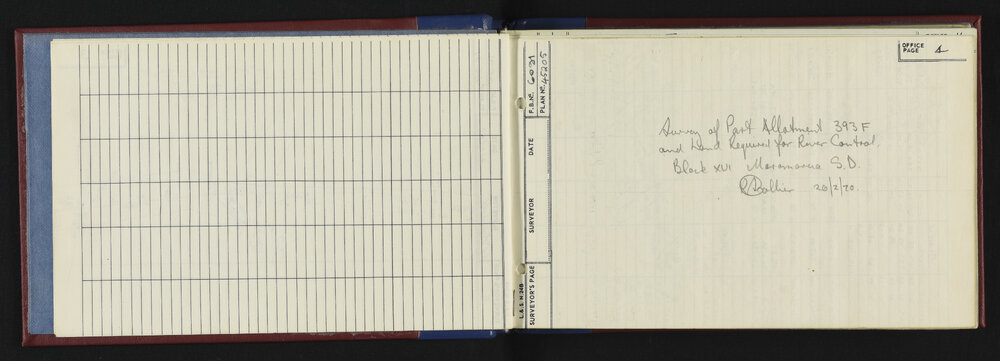 F.B. No. 6031
PLAN No. 45205
DATE
SURVEYOR
SURVEYOR'S PAGE
L. & S. H 24B
OFFICE PAGE 1
Survey of Part Allotment 393F
and Land Required for River Control.
Block XVI Maramarua S.D.
20/2/70.